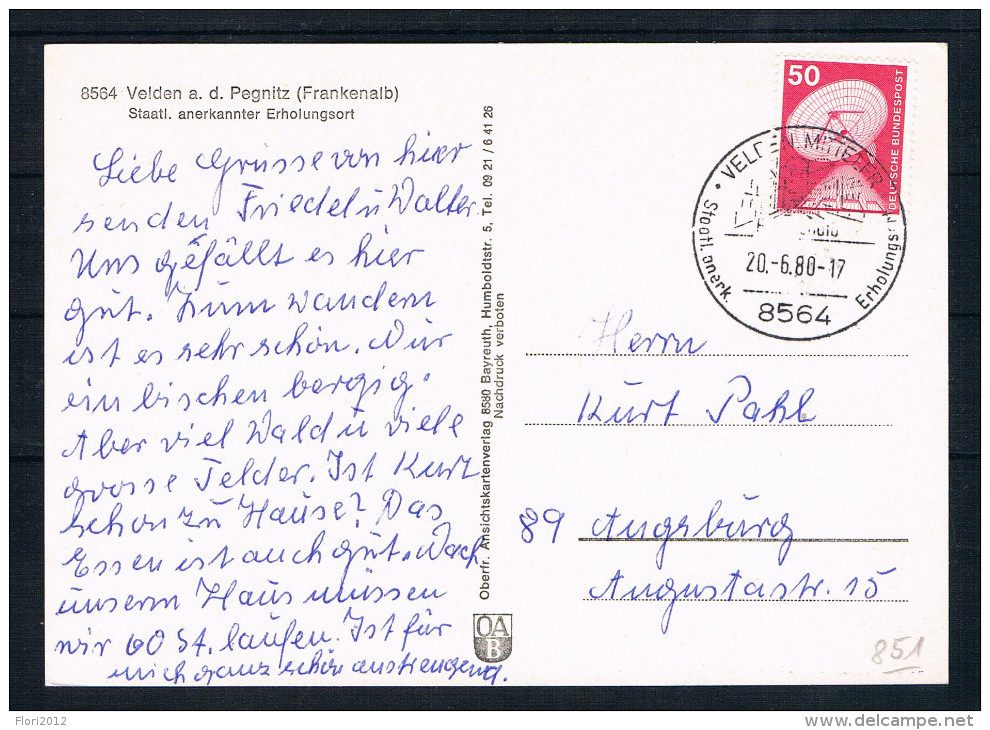 8564 Velden a. d. Pegnitz (Frankenalb)
Staatl. anerkannter Erholungsort
Liebe Grüsse von hier
senden Friedel u Walter.
Uns gefällt es hier
gut. Zum wandern
ist es sehr schön. Nur
ein bischen bergig.
Aber viel Wald u viele
grosse Felder. Ist Kurt
schon zu Hause? Das
Essen ist auch gut. Nach
unserm Haus müssen
wir 60 St. laufen. Ist für
mich ganz schön anstrengend.
Oberfr. Ansichtskartenverlag 8580 Bayreuth, Humboldtstr. 5, Tel. 09 21 / 6 41 26
Nachdruck verboten
OA
B
50
DEUTSCHE BUNDESPOST
VELDEN, MITTELFR
Staatl. anerk. Erholungsort
20.-6.80-17
8564
Herrn
Kurt Pahl
89 Augsburg
Augustastr. 15
851
Flori2012
www.delcampe.net